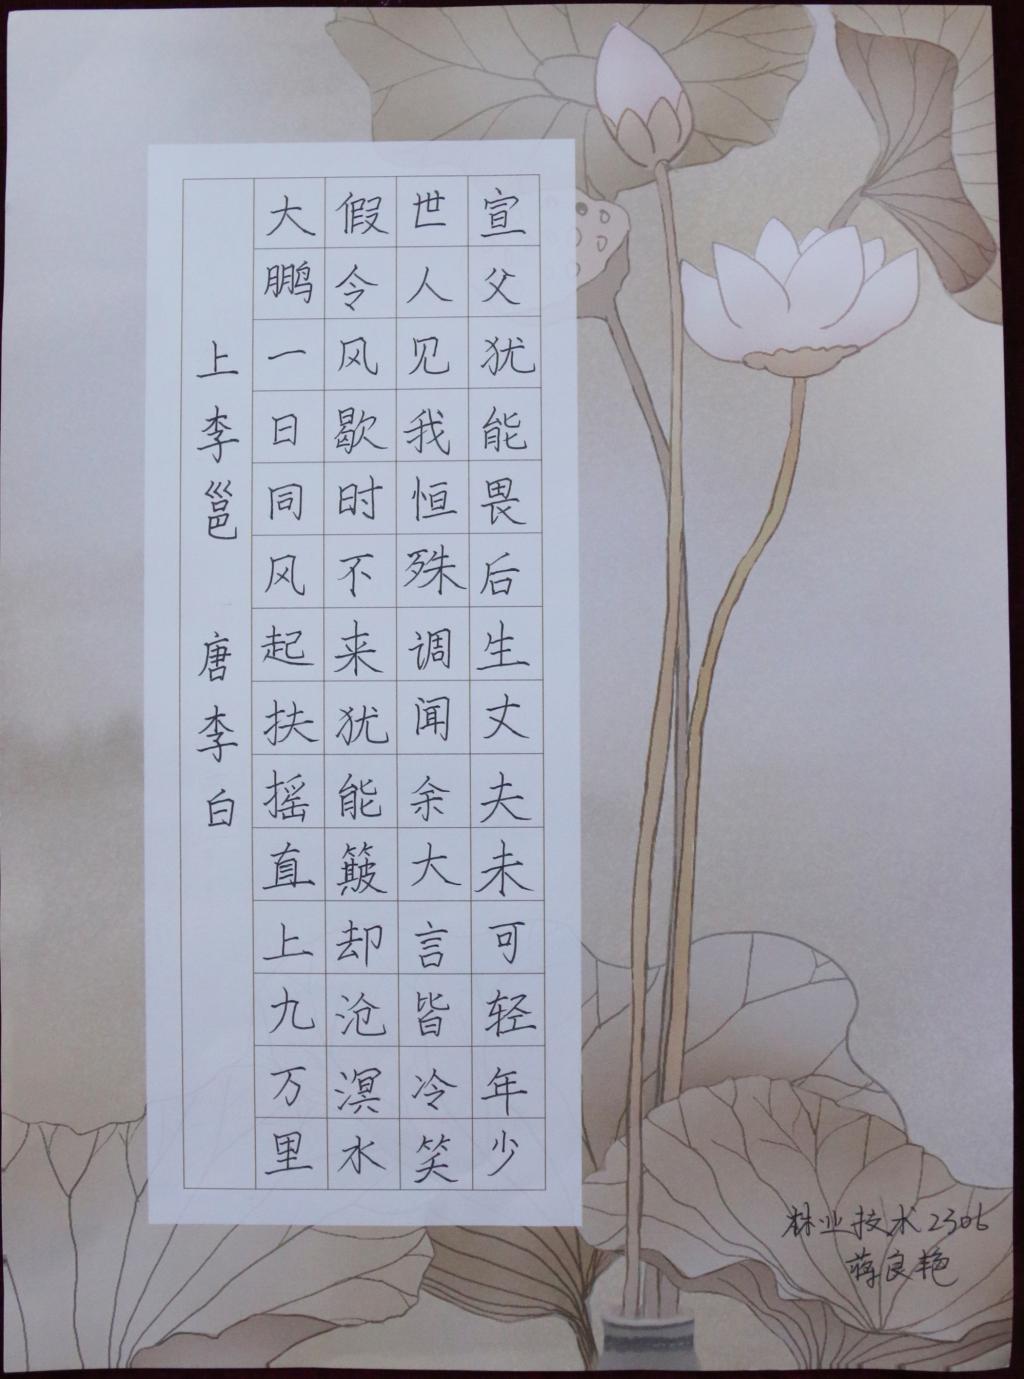 上李邕 唐李白
大鹏一日同风起扶摇直上九万里
假令风歇时不来犹能簸却沧溟水
世人见我恒殊调闻余大言皆冷笑
宣父犹能畏后生丈夫未可轻年少
林业技术2306
蒋良艳